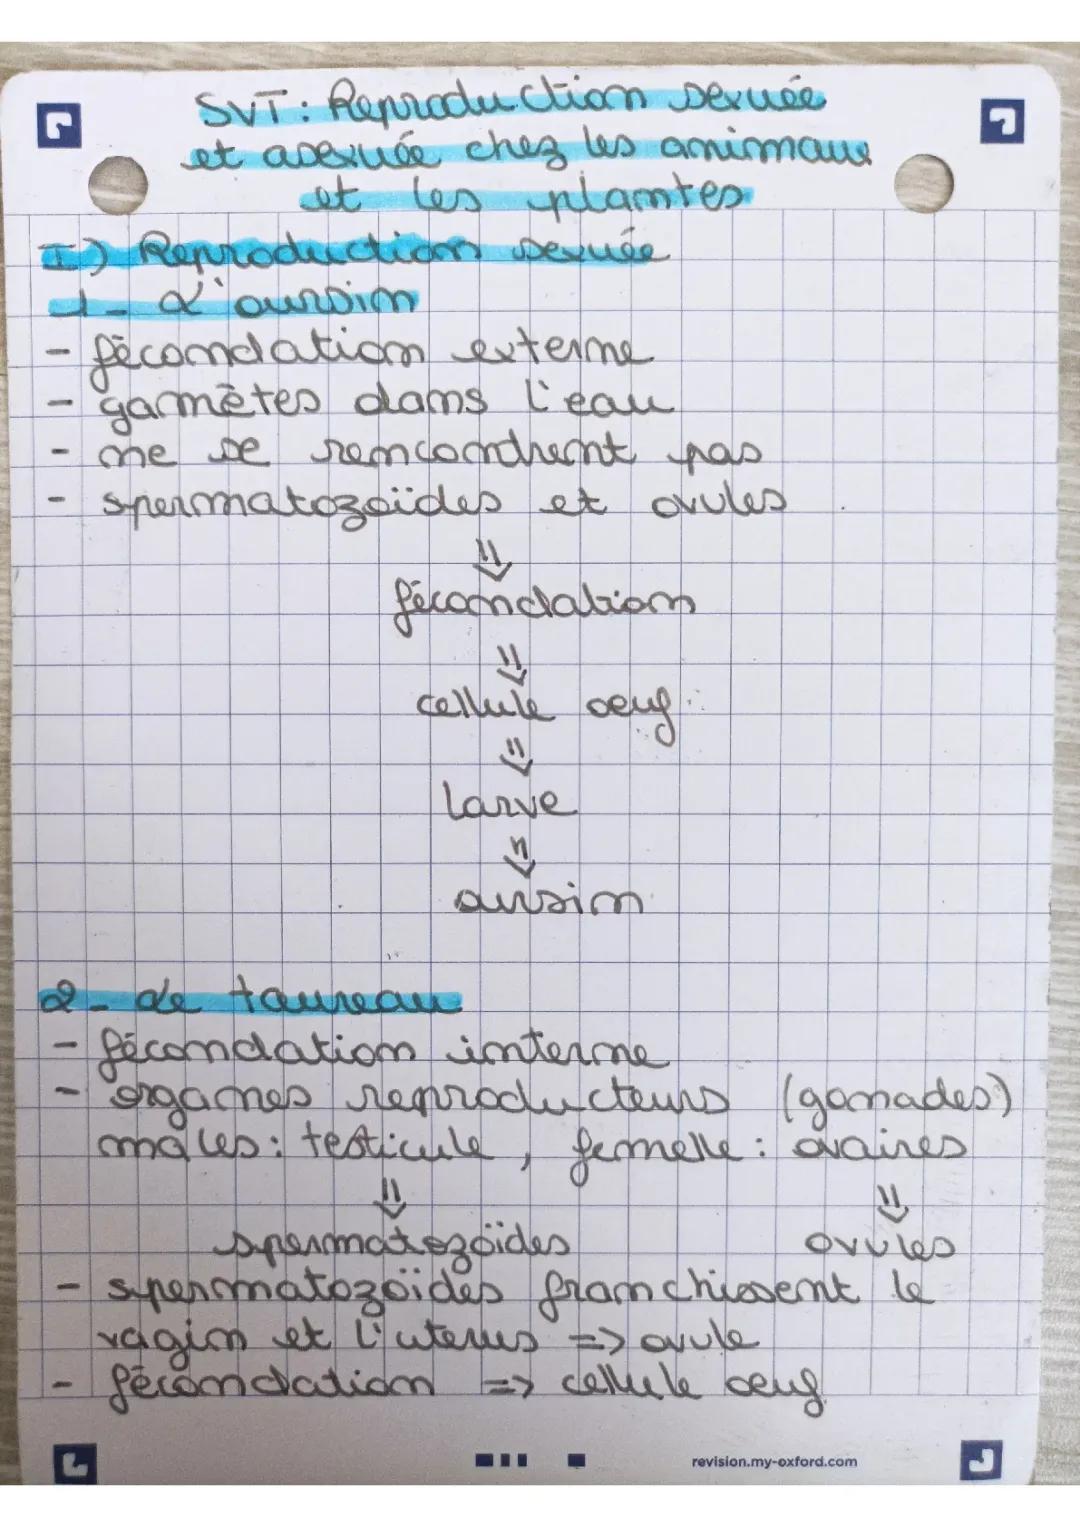 SVT : Reproduction sexuée
et asexuée chez les animaux
et les plantes
I) Reproduction sexuée
1- L'oursin
- fécondation externe
- gamètes dans l'eau
- ne se rencontrent pas
- spermatozoïdes et ovules
⇓
fécondation
⇓
cellule oeuf
⇓
larve
⇓
oursin
2- Le taureau
- fécondation interne
- organes reproducteurs (gonades)
males : testicule, femelle : ovaires
⇓ ⇓
spermatozoïdes ovules
- spermatozoïdes franchissent le
vagin et l'uterus => ovule
- fécondation => cellule oeuf
revision.my-oxford.com